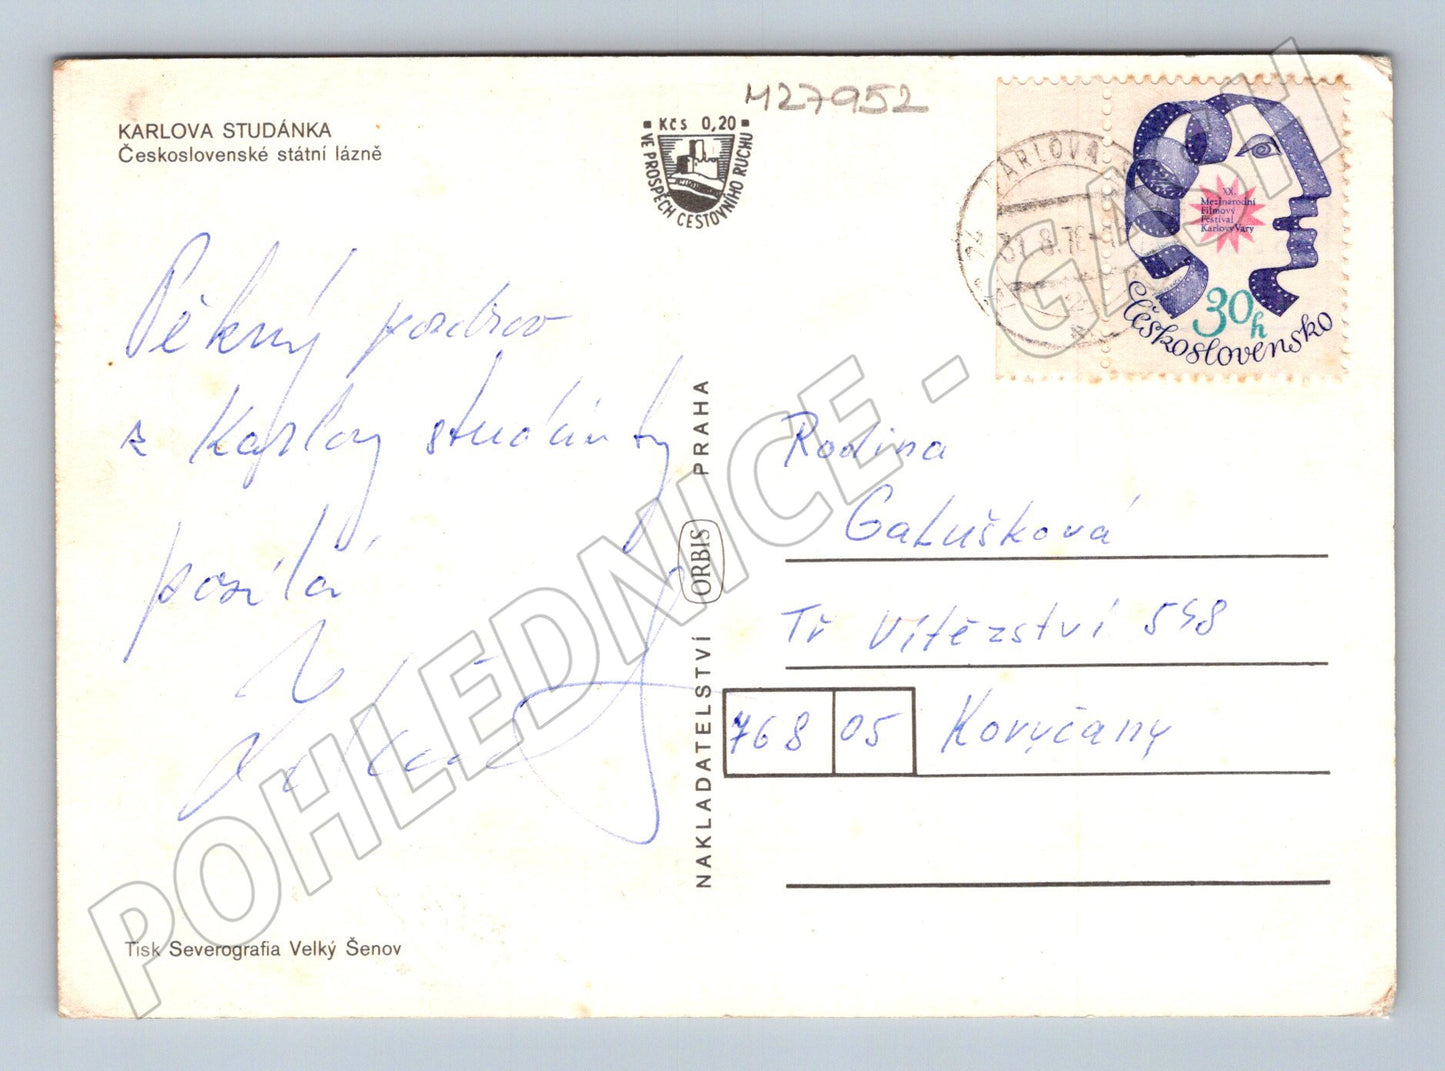 KARLOVA STUDÁNKA
Československé státní lázně
M27952
Kčs 0,20
VE PROSPĚCH CESTOVNÍHO RUCHU
KARLOVA
31.8.76
XX.
Mezinárodní
Filmový
Festival
Karlovy Vary
30h
Československo
Pěkný pozdrav
z Karlovy studánky
posílá
NAKLADATELSTVÍ ORBIS PRAHA
Rodina
Galušková
Tř Vítězství 548
768 05 Koryčany
Tisk Severografia Velký Šenov
POHLEDNICE - GASH